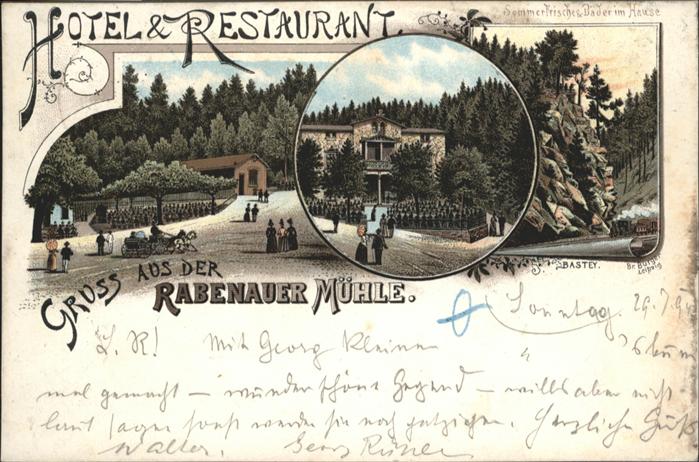 HOTEL & RESTAURANT.
Sommerfrische & Bäder im Hause
BASTEY.
Br. Bürger
Leipzig
GRUSS AUS DER
RABENAUER MÜHLE.
Sonntag. 29.7.
L. R! Mit Georg kleinen
mal gemacht – wunderschöne Gegend – will aber nicht
laut sagen sonst werden sie noch Herzliche Gruß
Walter. Georg